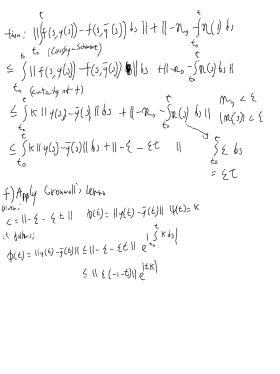 then: || ∫_{t_0}^{t} (f(s,y(s)) - f(s,ȳ(s))) ds || + || -m_0 - ∫_{t_0}^{t} m(s) ds
(Cauchy-Schwarz)
≤ ∫_{t_0}^{t} || f(s,y(s)) - f(s,ȳ(s)) || ds + || -m_0 - ∫_{t_0}^{t} m(s) ds ||
(continuity of f)
≤ ∫_{t_0}^{t} K || y(s) - ȳ(s) || ds + || -m_0 - ∫_{t_0}^{t} m(s) ds || m_0 < ε
|m(s)| < ε
≤ ∫_{t_0}^{t} K || y(s) - ȳ(s) || ds + || -ε - ετ || ∫_{t_0}^{t} ε ds
= ετ
f) Apply Gronwall's Lemma
Given:
c = || -ε - εt || φ(t) = || y(t) - ȳ(t) || ψ(t) = K
it follows:
φ(t) = || y(t) - ȳ(t) || ≤ || -ε - εt || e^{|∫_{t_0}^{t} K ds|}
≤ || ε(-1-t) || e^{|tK|}